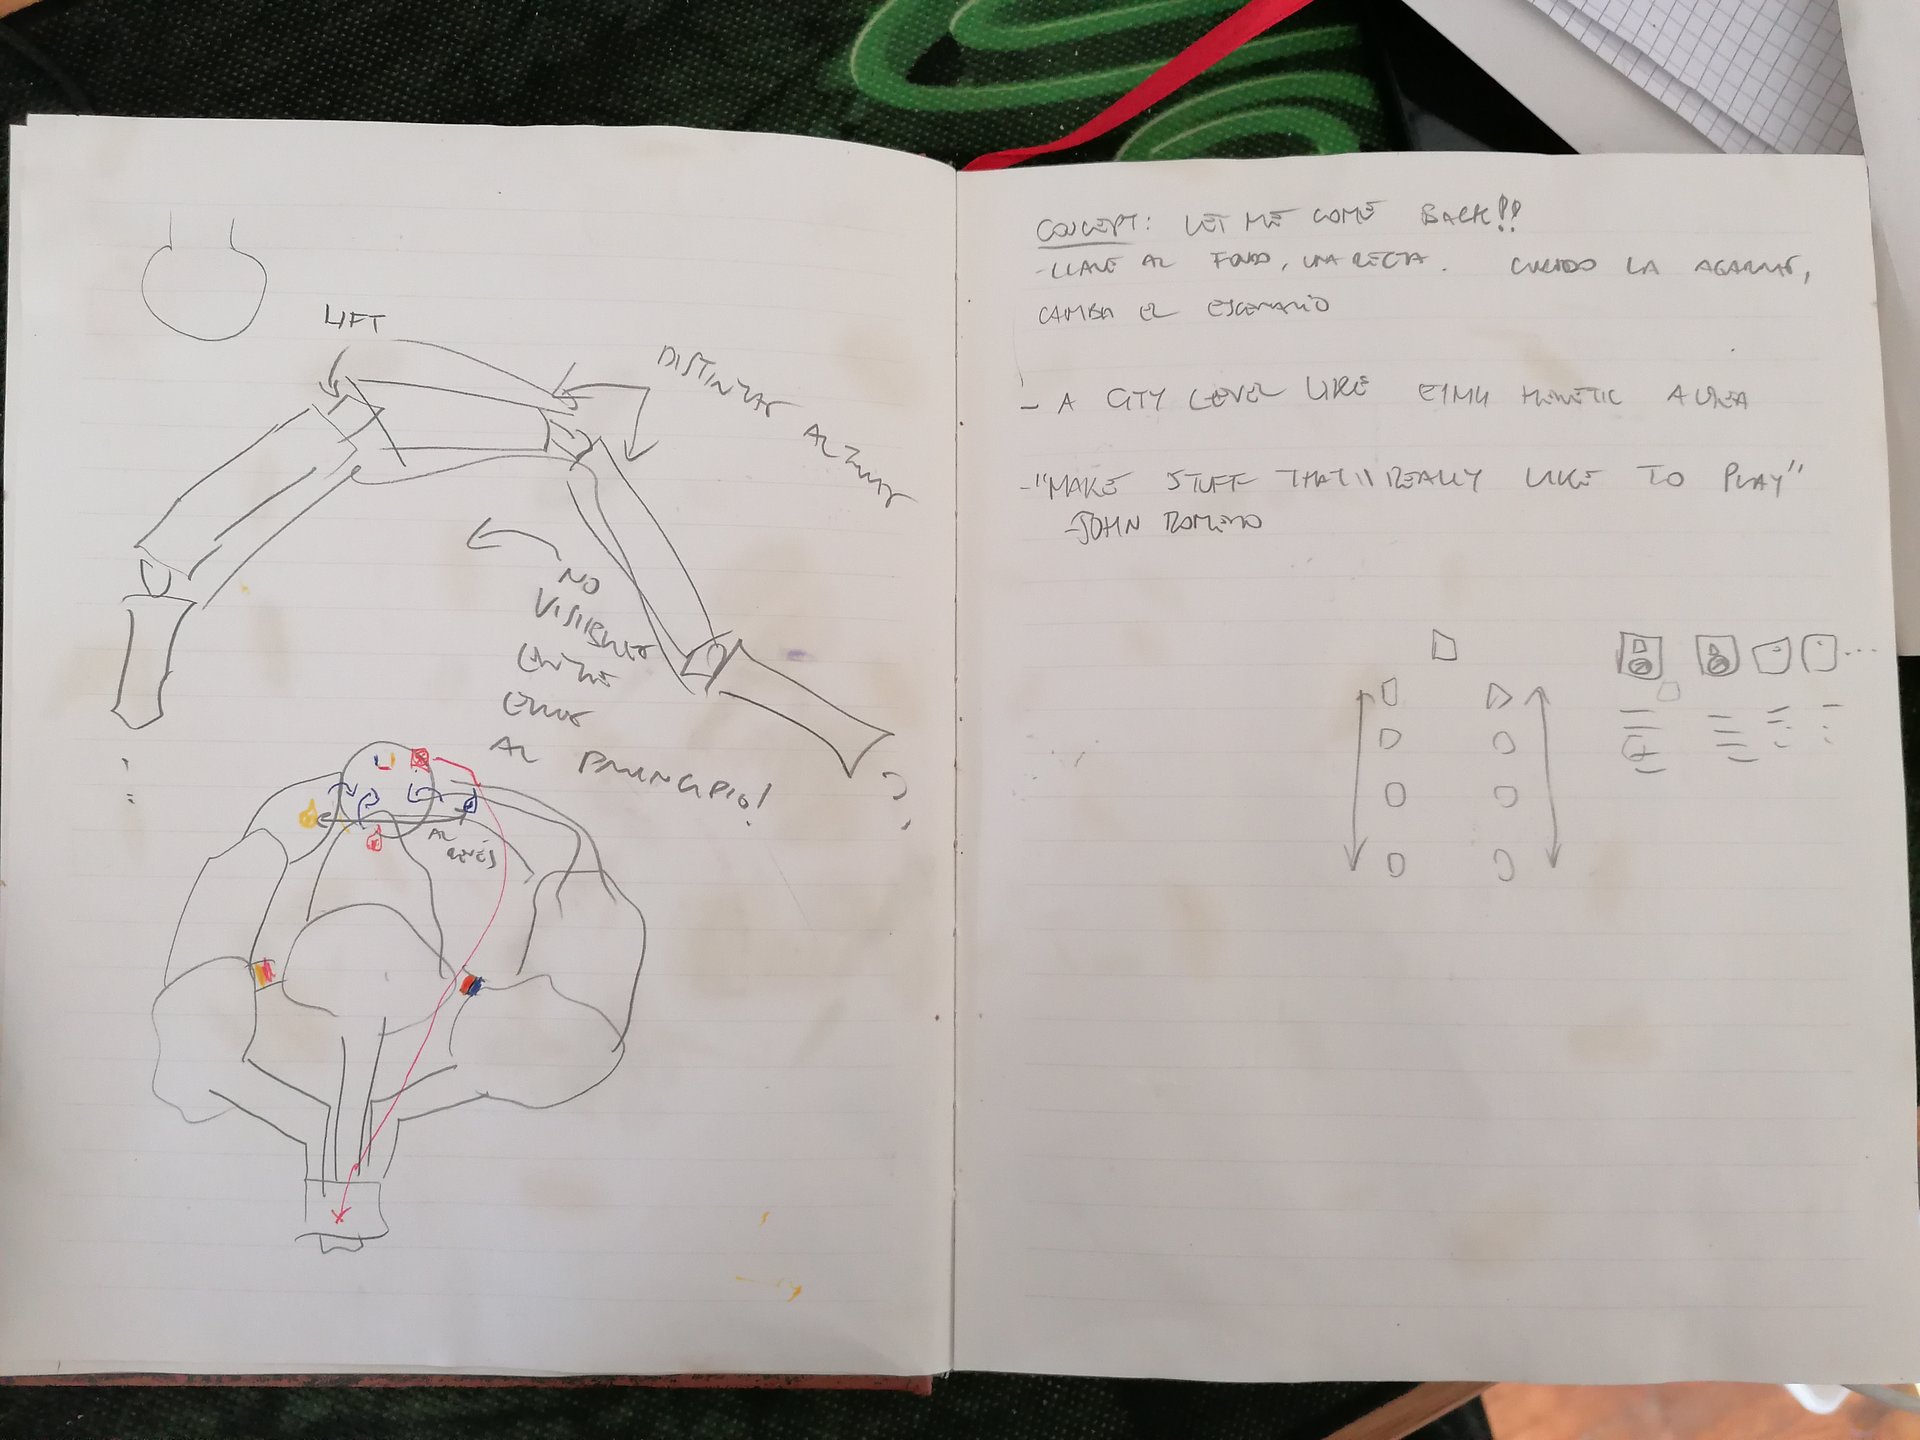 LIFT
DISTINTAS ALTURAS
NO
VISIBLES
ENTRE
ELLAS
AL PRINCIPIO!
AL
REVÉS
CONCEPT: LET ME COME BACK!!
-LLAVE AL FONDO, UNA RECTA. CUANDO LA AGARRAS,
CAMBIA EL ESCENARIO
- A CITY LEVEL LIKE E1M4 HERETIC AUREA
-"MAKE STUFF THAT U REALLY LIKE TO PLAY"
-JOHN ROMERO